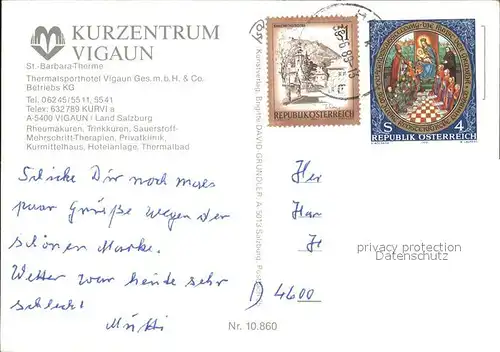 KURZENTRUM
VIGAUN
St.-Barbara-Therme
Thermalsporthotel Vigaun Ges.m.b.H. & Co.
Betriebs KG
Tel. 06245/5511, 5541
Telex: 632789 KURVI a
A-5400 VIGAUN / Land Salzburg
Rheumakuren, Trinkkuren, Sauerstoff-
Mehrschritt-Therapien, Privatklinik,
Kurmittelhaus, Hotelanlage, Thermalbad
Schicke Dir noch
paar Grüße wegen der
schönen Marke.
Wetter war heute sehr
schlecht!
Mukki
Nr. 10.860
Kunstverlag, Brigitte DAVID-GRÜNDLER, A-5013 Salzburg,
REPUBLIK ÖSTERREICH
S 4
REPUBLIK ÖSTERREICH
Her
Han
D 4600
privacy protection
Datenschutz